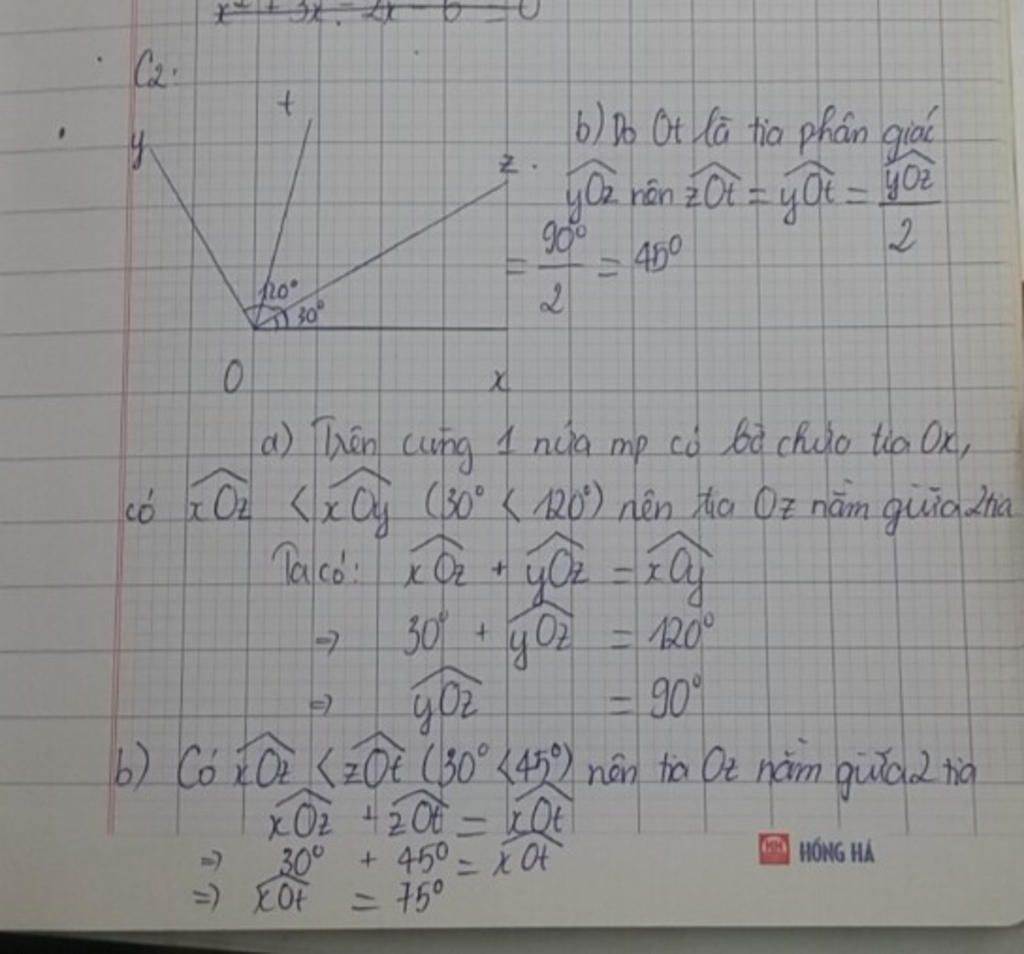 x² + 3x - 2x - 6 = 0
C2.
t
y
z
120°
30°
O
x
b) Do Ot là tia phân giác
yOz nên zOt = yOt = yOz/2
= 90°/2 = 45°
a) Trên cùng 1 nửa mp có bờ chứa tia Ox,
có xOz < xOy (30° < 120°) nên tia Oz nằm giữa 2 tia
Ta có: xOz + yOz = xOy
⇒ 30° + yOz = 120°
⇒ yOz = 90°
b) Có xOz < zOt (30° < 45°) nên tia Oz nằm giữa 2 tia
xOz + zOt = xOt
⇒ 30° + 45° = xOt
⇒ xOt = 75°
HỒNG HÀ